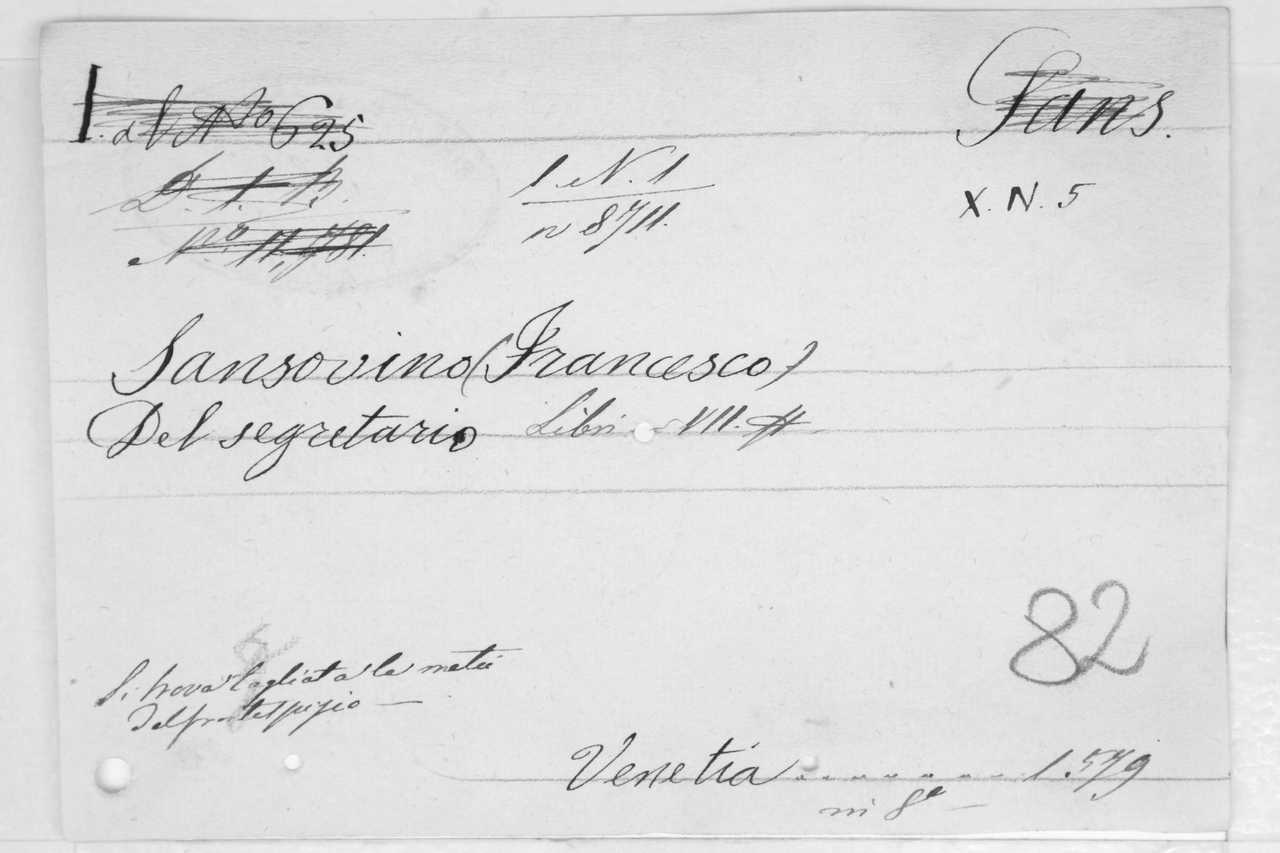 Sans.
N.º 625
D. 1. B.
N.º 11,781.
1. N. 1
n 8711.
X. N. 5
Sansovino (Francesco)
Del segretario Libri VII.
82
Si trova tagliata la metà
del frontespizio —
Venetia . . . . . . . . 1.579
in 8º —